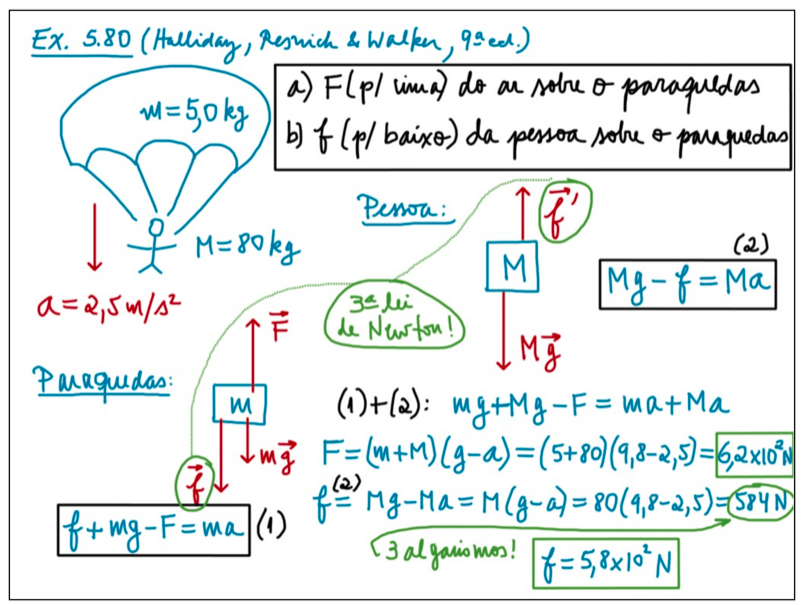 Ex. 5.80 (Halliday, Resnick & Walker, 9ª ed.)
a) F (p/ cima) do ar sobre o paraquedas
b) f (p/ baixo) da pessoa sobre o paraquedas
m = 5,0 kg
M = 80 kg
a = 2,5 m/s²
Pessoa:
f⃗'
M
Mg⃗
(2)
Mg - f = Ma
3ª lei
de Newton!
Paraquedas:
F⃗
m
mg⃗
f⃗
f + mg - F = ma (1)
(1)+(2): mg+Mg-F = ma+Ma
F = (m+M)(g-a) = (5+80)(9,8-2,5) = 6,2x10² N
f =(2) Mg-Ma = M(g-a) = 80(9,8-2,5) = 584 N
3 algarismos!
f = 5,8x10² N